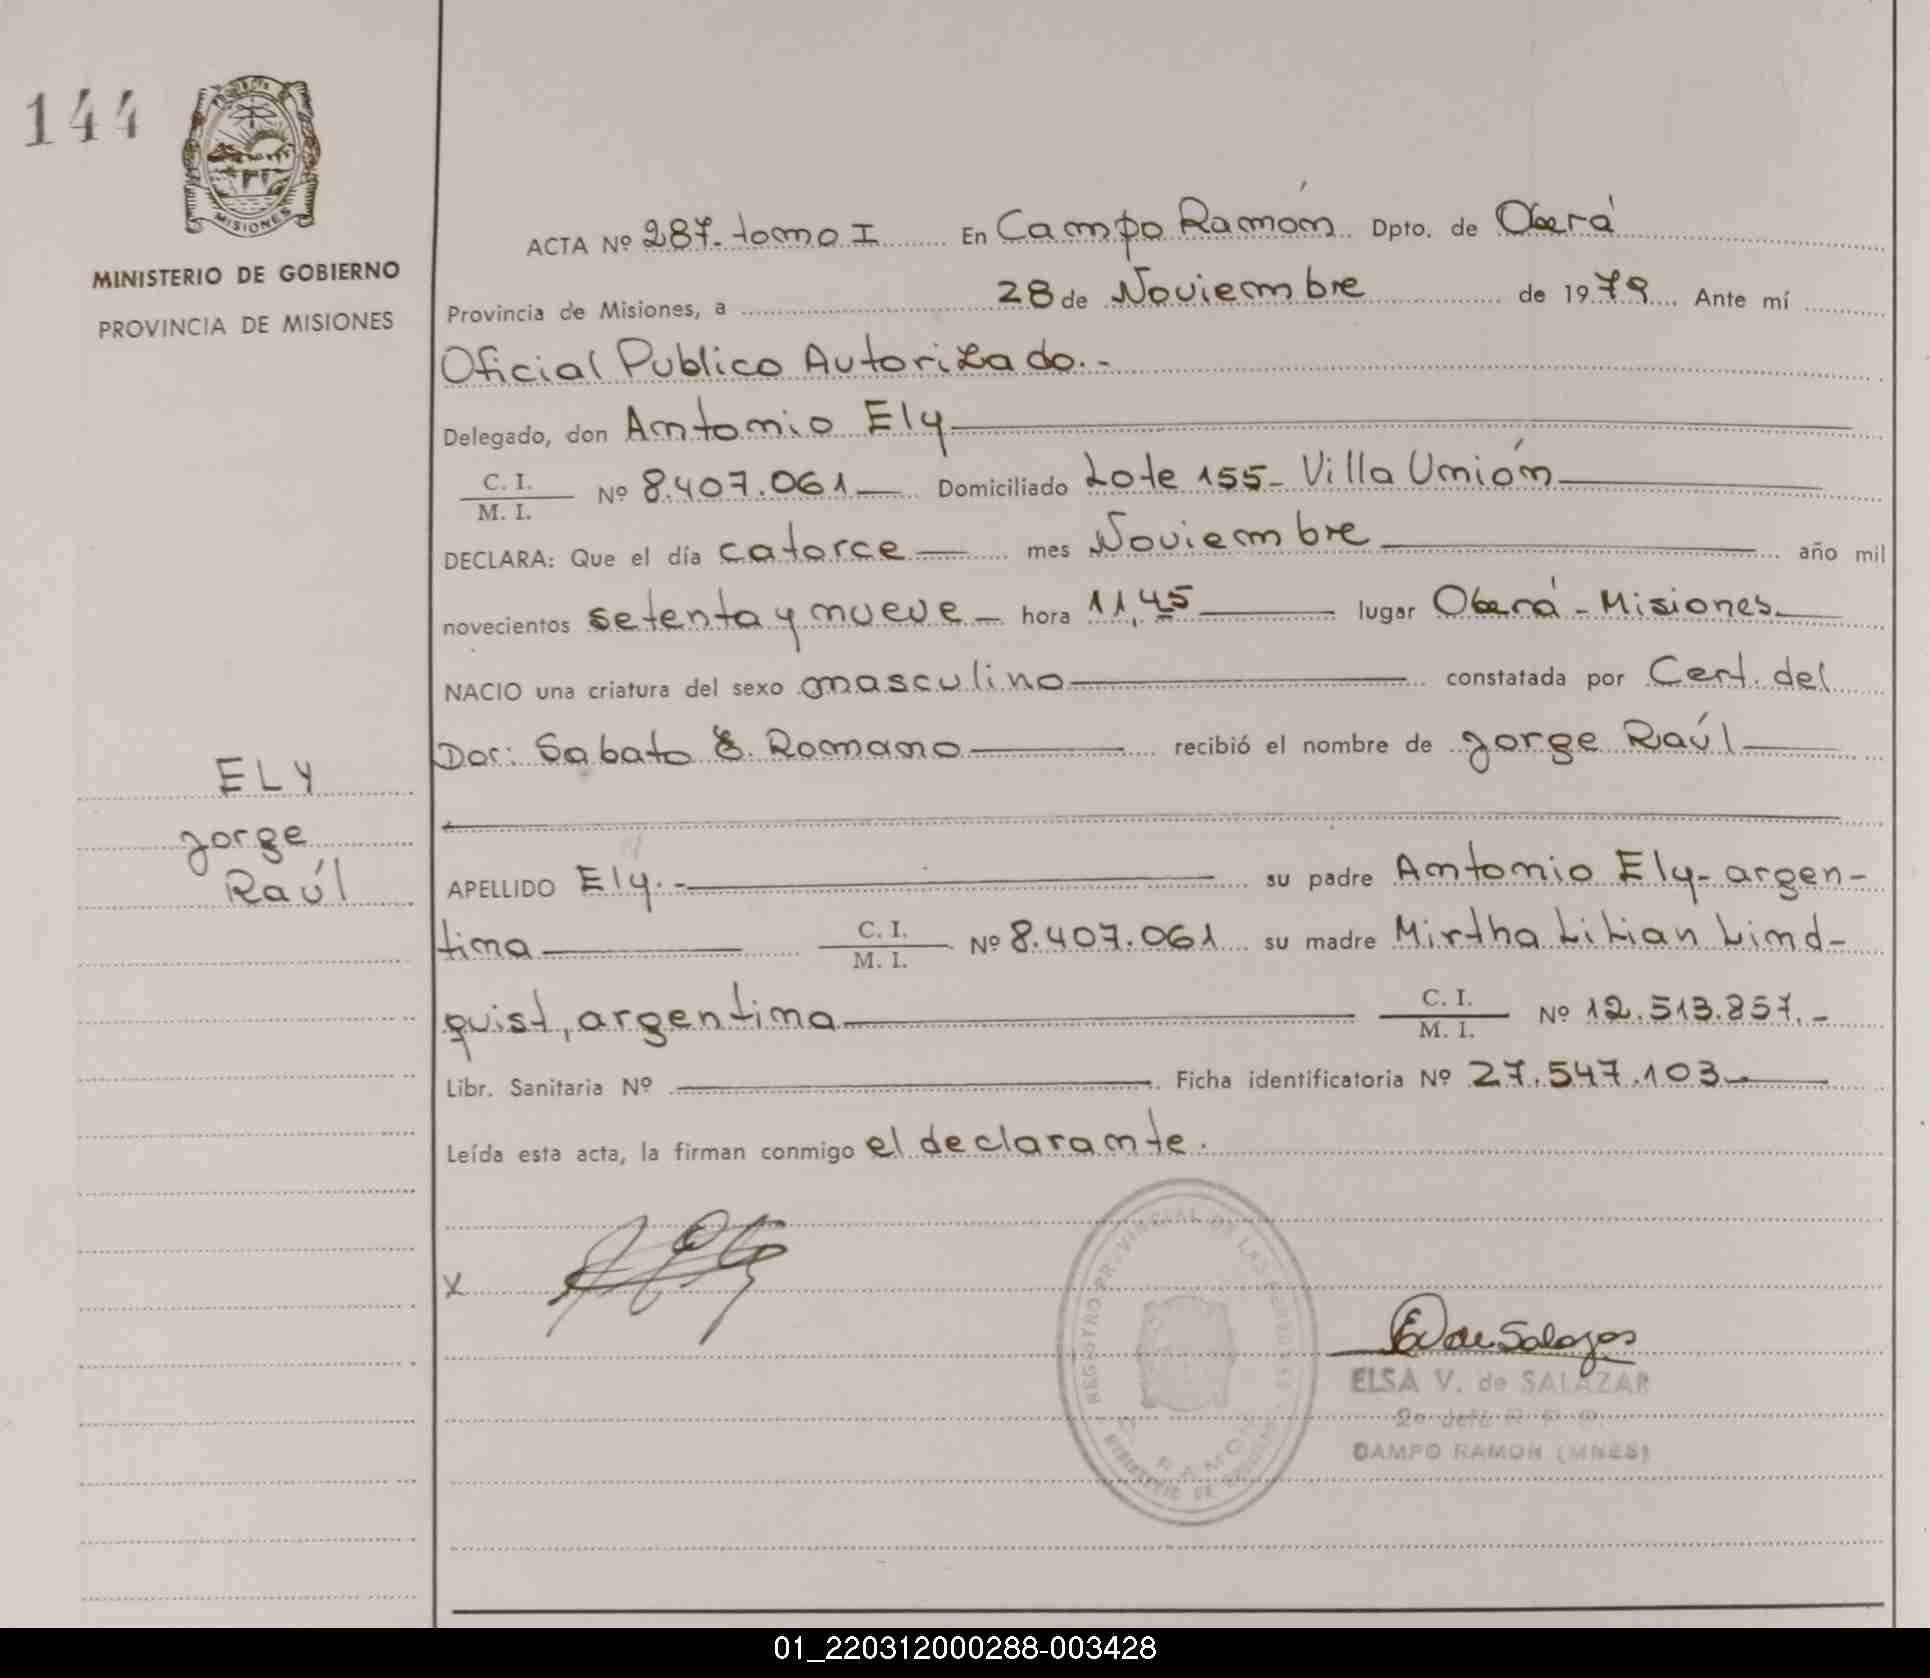 144
MISIONES
MINISTERIO DE GOBIERNO
PROVINCIA DE MISIONES
ELY
Jorge
Raúl
ACTA Nº 287. tomo I En Campo Ramón Dpto. de Oberá
Provincia de Misiones, a 28 de Noviembre de 1979 Ante mí
Oficial Publico Autorizado.-
Delegado, don Antonio Ely
C. I.
M. I. Nº 8.407.061 Domiciliado Lote 155 - Villa Unión
DECLARA: Que el día catorce mes Noviembre año mil
novecientos setenta y nueve hora 11,45 lugar Oberá - Misiones
NACIO una criatura del sexo masculino constatada por Cert. del
Doc: Sabato E. Romano recibió el nombre de Jorge Raúl
APELLIDO Ely.- su padre Antonio Ely - argen-
tina C. I.
M. I. Nº 8.407.061 su madre Mirtha Lilian Lind-
quist, argentina C. I.
M. I. Nº 12.513.857.-
Libr. Sanitaria Nº Ficha identificatoria Nº 27.547.103
Leída esta acta, la firman conmigo el declarante.
X
ELSA V. de SALAZAR
CAMPO RAMON (MNES)
01_220312000288-003428